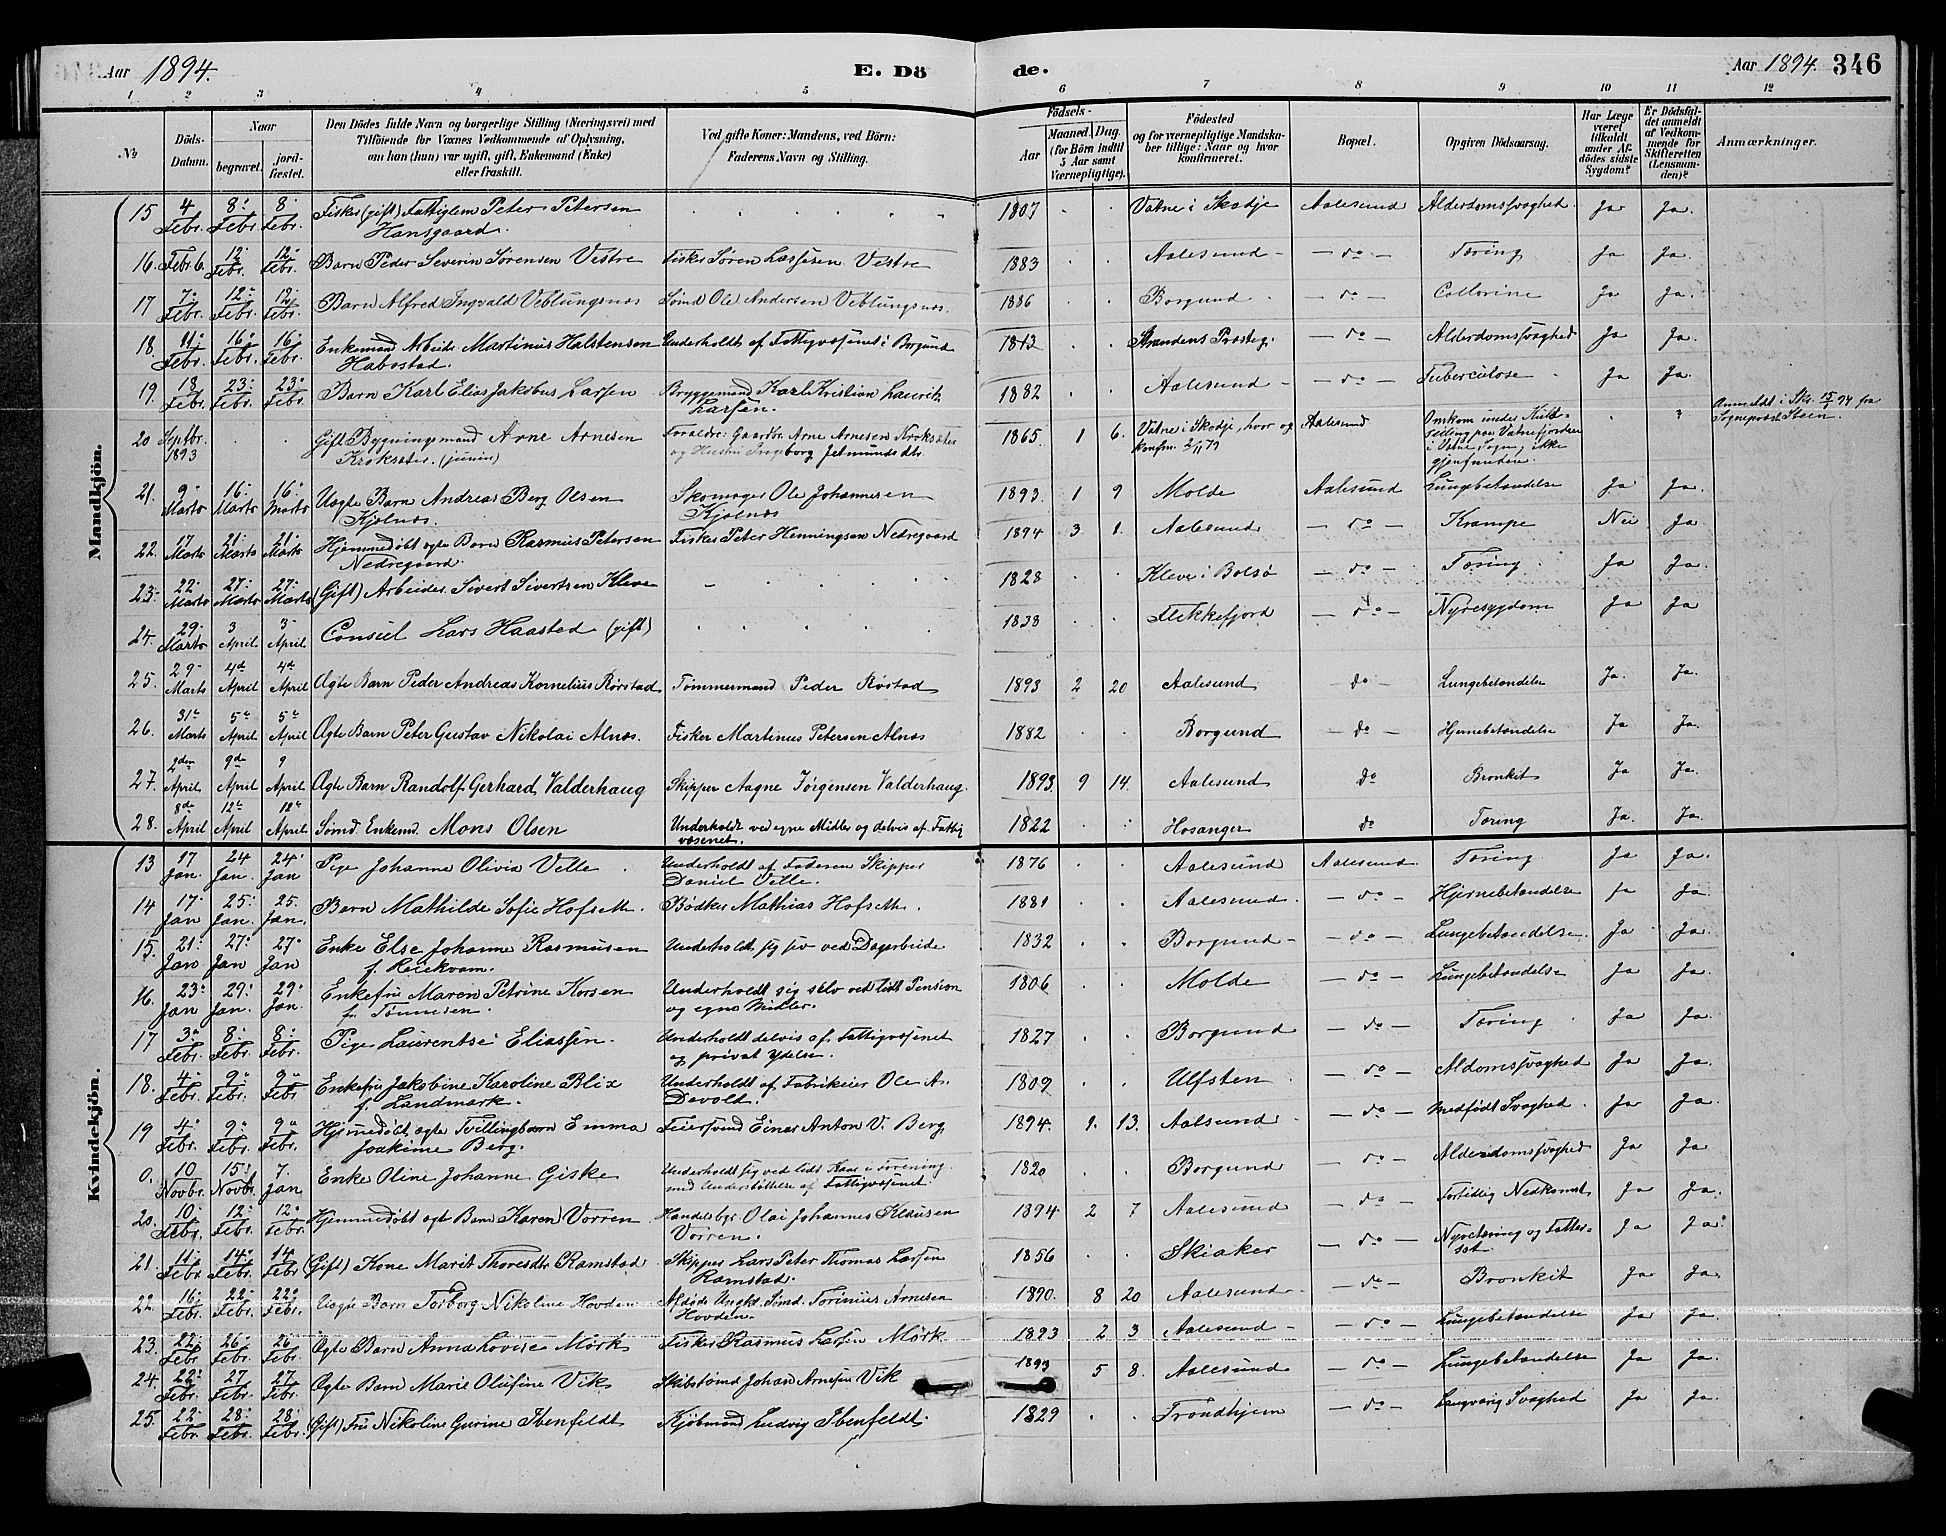 Aar 1894. E. Dö de. Aar 1894. 346
1 2 3 4 5 6 7 8 9 10 11 12
No Döds-Datum. Naar begravet. jord-fæstet. Den Dödes fulde Navn og borgerlige Stilling (Næringsvei) med Tilföiende for Voxnes Vedkommende af Oplysning, om han (hun) var ugift, gift, Enkemand (Enke) eller fraskilt. Ved gifte Koner: Mandens, ved Börn: Faderens Navn og Stilling. Födsels- Aar Maaned. Dag. (for Börn indtil 5 Aar samt Værnepligtige). Födested og for værnepligtige Mandska-ber tillige: Naar og hvor konfirmeret. Bopæl. Opgiven Dödsaarsag. Har Læge været tilkaldt under Af-dödes sidste Sygdom? Er Dödsfal-det anmeldt af Vedkom-mende for Skifteretten (Lensman-den)? Anmærkninger.
Mandkjön.
15 4 Febr. 8 Febr. 8 Febr. Fisker (gift) Fattiglem Peter Petersen 1807 Vatne i Skodje Aalesund Alderdomssvaghed. Ja Ja.
Hansgaard.
16. Febr 6. 12 Febr. 12 Febr. Barn Peder Severin Sørensen Vestre Fisker Søren Larssen Vestre 1883 Aalesund - do - Tæring Ja Ja.
17 7 Febr. 12 Febr. 12 Febr. Barn Alfred Ingvald Veblungsnæs Sømd Ole Andersen Veblungsnæs. 1886 Borgund - do - Collorine Ja Ja.
18. 11 Febr. 16 Febr. 16 Febr. Enkemand Arbeider Martinus Halstensen Underholdt af Fattigvæsenet i Borgund 1813 Strandens Præsteg. - do - Alderdomssvaghed Ja Ja.
Habostad.
19. 18 Febr. 23 Febr. 23 Febr. Barn Karl Elias Jakobus Larsen Bryggemand Karl Kristian Laurits 1882 Aalesund - do - Tuberculose Ja Ja.
Larsen.
20 Septbr. 1893 Gift Bygningsmand Arne Arnesen Foreldre: Gaardbr. Arne Arnesen Kroksæter 1865 1 6. Vatne i Skodje, hvor og Aalesund Omkom under Kuld- Anmeldt i Skr. 15/1 94 fra
Kroksæter. (junior) og Hustru Ingeborg Jetmundsdtr. konfm. 2/11 79 seiling paa Vatnefjorden Sogneprest Steen.
i Vatne Sogn, ikke
gjenfunden.
21. 9 Marts 16 Marts 16 Marts Uægte Barn Andreas Berg Olsen Skomager Ole Johannesen 1893. 1 9 Molde Aalesund Lungebetændelse Ja Ja.
Kjølnæs. Kjølnæs
22. 17 Marts 21 Marts 21 Marts Hjemmedøbt ægte Barn Rasmus Petersen Fisker Peter Henningsen Nedregaard 1894 3 1. Aalesund - do - Krampe Nei Ja
Nedregaard.
23. 22 Marts 27 Marts 27 Marts (Gift) Arbeider Sivert Sivertsen Kleve 1828 Kleve i Bolsø - do - Tæring Ja Ja.
24. 29 Marts 3 April 3 April Consul Lars Haasted (gift) 1833 Flekkefjord - do - Nyresygdom Ja Ja
25. 29 Marts 4de April 4de April Ægte Barn Peder Andreas Kornelius Rørstad Tømmermand Peder Røstad 1893 2 20 Aalesund do Lungebetændelse Ja. Ja.
26. 31te Marts 5te April 5te April Ægte Barn Peter Gustav Nikolai Alnæs. Fisker Martinus Petersen Alnæs 1882 Borgund - do - Hjernebetændelse Ja Ja.
27. 2den April 9de April 9 April Ægte Barn Randolf Gerhard Valderhaug Skipper Aagne Jørgensen Valderhaug. 1893. 9 14. Aalesund do Bronkit Ja Ja.
28. 8de April 12te April 12te April Sømd. Enkemd. Mons Olsen Underholdt ved egne Midler og delvis af Fattig 1822 Hosanger do Tæring Ja. Ja.
væsenet.
Kvindekjön.
13 17 Jan. 24 Jan. 24 Jan Pige Johanne Olivia Velle Underholdt af Faderen Skipper 1876 Aalesund Aalesund Tæring Ja Ja.
Daniel Velle.
14 17 Jan 25 Jan. 25. Jan. Barn Mathilde Sofie Hofseth Bødker Mathias Hofseth. 1881 Aalesund. - do - Hjernebetændelse Ja Ja.
15. 21 Jan 27 Jan 27 Jan Enke Else Johanne Rasmusen Underholdt sig selv ved Dagarbeide 1832 Borgund - do - Lungebetændelse. Ja Ja.
16. 23 Jan 29 Jan. 29 Jan Enkefru Maren Petrine Korsen Underholdt sig selv ved lidt Pension 1806 Molde - do - Lungebetændelse Ja Ja.
f. Tønnesen. og egne Midler.
17 3 Febr. 8 Febr. 8 Febr. Pige Laurentse Eliassen. Underholdt delvis af Fattigvæsenet 1827 Borgund - do - Tæring Ja Ja.
og privat Ydelse.
18. 4 Febr. 9 Febr. 9 Febr Enkefru Jakobine Karoline Blix Underholdt af Fabrikeier Ole A. 1809 Ulfsten - do - Aldomssvaghed Ja Ja.
f. Landmark. Devold.
19 4 Febr. 9 Febr. 9 Febr. Hjemmedøbt ægte Tvillingbarn Emma Feiersvend Einar Anton V. Berg 1894. 1. 13. Aalsund - do - Medfødt Svaghed. Ja Ja.
Joakime Berg.
0. 10 Novbr. 15 Novbr. 7. Jan Enke Oline Johanne Giske Underholdt sig ved lidt 1820 Borgund - do - Alderdomssvaghed Ja Ja.
med Understøttelse af Fattigvæsenet
20. 10 Febr. 12 Febr. 12 Febr. Hjemmedøbt ægte Barn Karen Vorren Handelsbgr. Olai Johannes Klausen 1894 2 7 Aalesund - do - Fortidlig Nedkomst Ja Ja.
Vorren.
21. 11 Febr. 14 Febr. 14 Febr (Gift) Kone Marit Thoresdtr Ramstad Skipper Lars Peter Thomas Larsen 1856 Skiaker - do - Ja Ja.
Ramstad.
22. 16 Febr. 22 Febr. 22 Febr. Uægte Barn Torborg Nikoline Hovden Afdøde Ungk. Sømd. Torinius Arnesen 1890. 8 20 Aalesund - do - Bronkit Ja Ja.
Hovden.
23. 22 Febr 26 Febr. 26 Febr. Ægte Barn Anna Lovise Mørk Fisker Rasmus Larsen Mørk 1893 2 3 Aalesund - do - Lungebetændelse Ja Ja.
24. 22 Febr. 27 Febr. 27 Febr. Ægte Barn Marie Olufine Vik Skibstømd Johan Arnesen Vik 1893 5 8. Aalesund - do - Lungebetændelse Ja Ja.
25. 22 Febr. 28 Febr. 28 Febr. (Gift) Fru Nikoline Gurine Ibenfeldt Kjøbmand Ludvig Ibenfeldt. 1829 Trondhjem - do - Langvarig Svaghed Ja Ja.